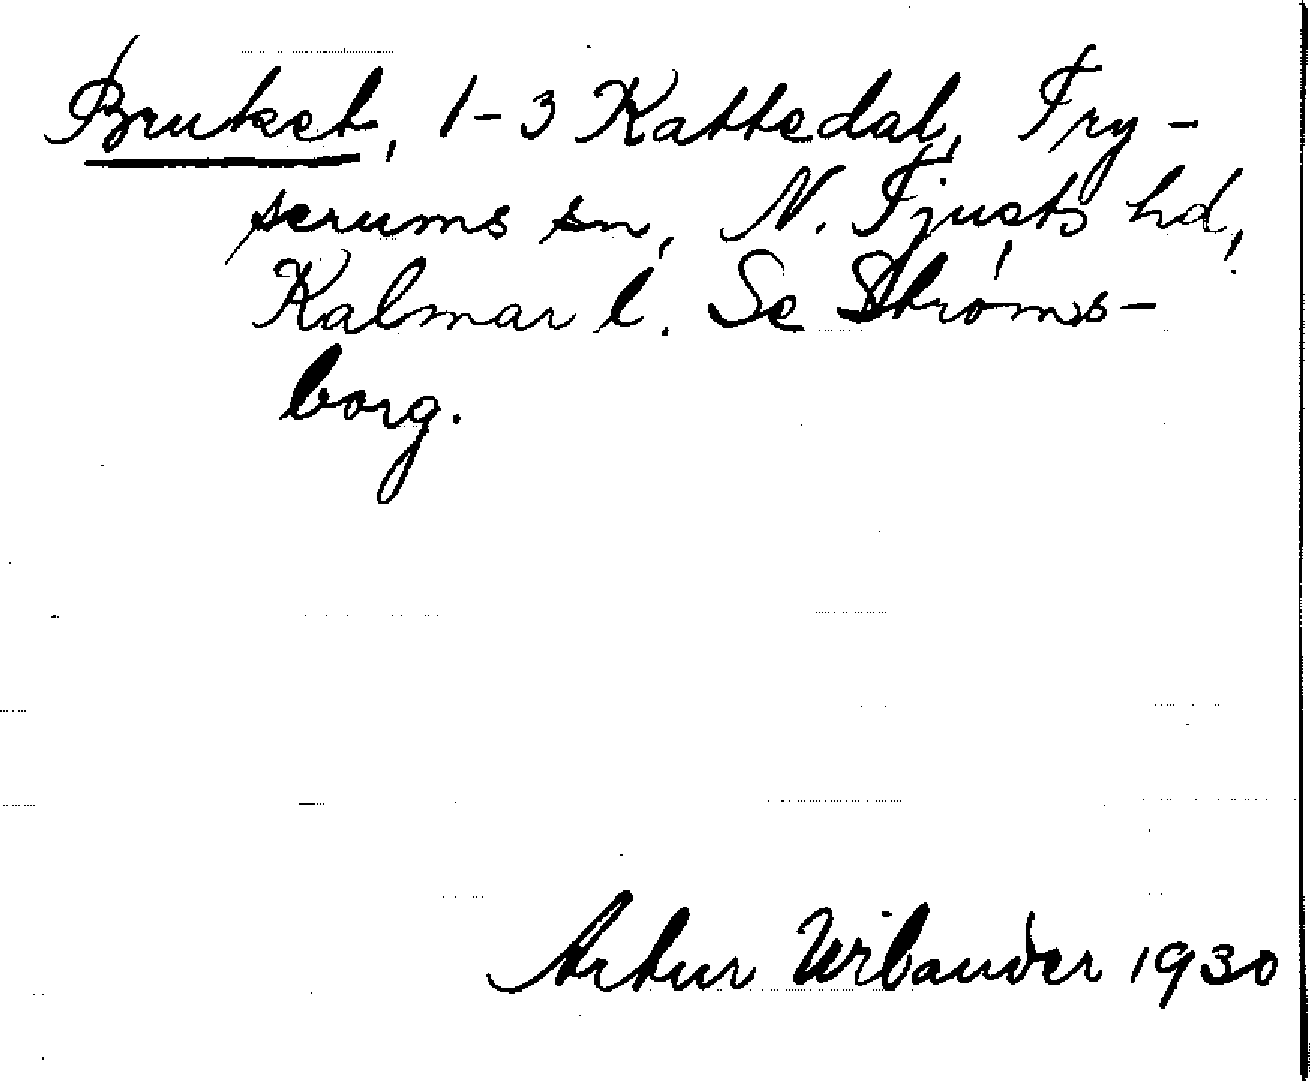 Bruket, 1-3 Kattedal, Try-
serums sn, N. Tjusts hd,
Kalmar l. Se Ströms-
borg.
Artur Wilander 1930